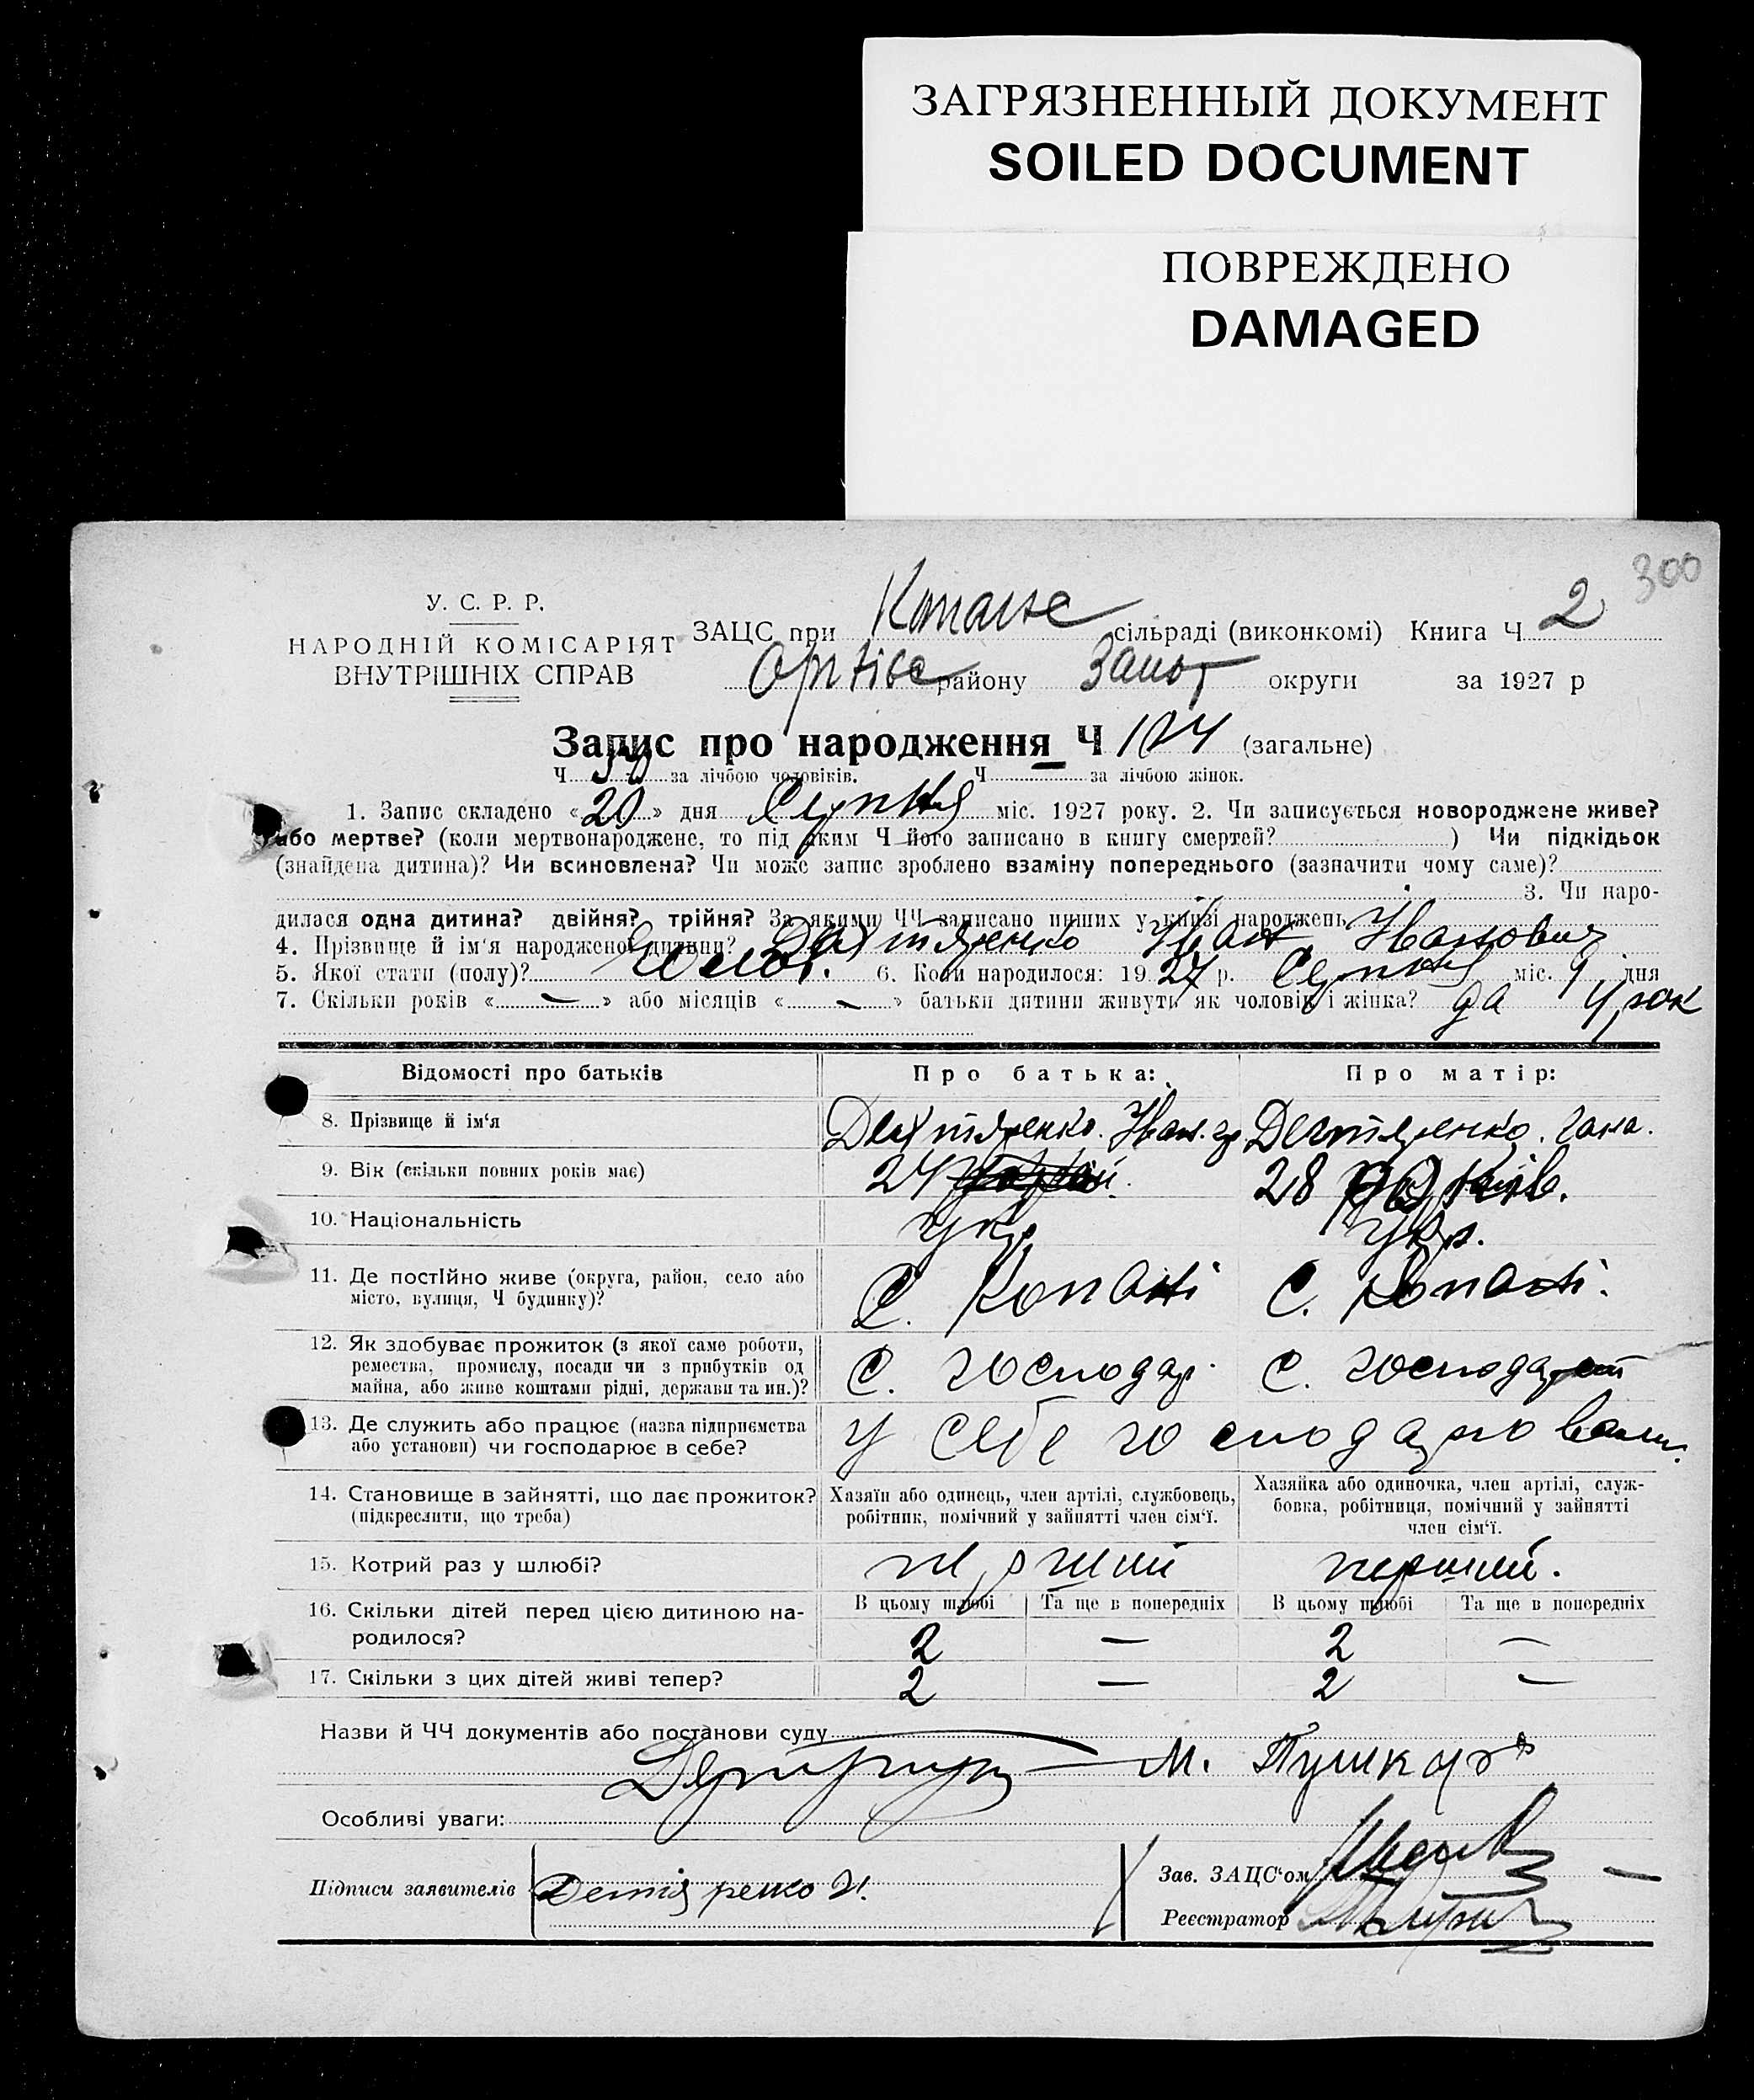 ЗАГРЯЗНЕННЫЙ ДОКУМЕНТ
SOILED DOCUMENT
ПОВРЕЖДЕНО
DAMAGED
300
У. С. Р. Р.
НАРОДНІЙ КОМІСАРІЯТ
ВНУТРІШНІХ СПРАВ
ЗАЦС при сільраді (виконкомі) Книга Ч 2
району Запор округи за 1927 р
Запис про народження Ч 124 (загальне)
Ч за лічбою чоловіків. Ч за лічбою жінок.
1. Запис складено « 20 » дня Серпня міс. 1927 року. 2. Чи записується новороджене живе?
або мертве? (коли мертвонароджене, то під яким Ч його записано в книгу смертей? ) Чи підкідьок
(знайдена дитина)? Чи всиновлена? Чи може запис зроблено взаміну попереднього (зазначити чому саме)?
3. Чи наро-
дилася одна дитина? двійня? трійня? За якими ЧЧ записано инших у книзі народжень
4. Прізвище й ім'я народженої дитини? Дехтяренко Іван Іванович
5. Якої стати (полу)? 6. Коли народилося: 1927 р. Серпня міс. 9 дня
7. Скільки років « — » або місяців « — » батьки дитини живуть як чоловік і жінка? да 4 рок
Відомості про батьків
Про батька:
Про матір:
8. Прізвище й ім'я
Дехтяренко. Іван. Дегтяренко. Гана.
9. Вік (скільки повних років має)
24 28
10. Національність
Укр. Укр.
11. Де постійно живе (округа, район, село або
місто, вулиця, Ч будинку)?
С. Копані С. Копані.
12. Як здобуває прожиток (з якої саме роботи,
ремества, промислу, посади чи з прибутків од
майна, або живе коштами рідні, держави та ин.)?
С. господар. С. господар
13. Де служить або працює (назва підприємства
або установи) чи господарює в себе?
У себе господарюванні.
14. Становище в зайнятті, що дає прожиток?
(підкреслити, що треба)
Хазяїн або одинець, член артілі, службовець,
робітник, помічний у зайнятті член сім'ї.
Хазяйка або одиночка, член артілі, служ-
бовка, робітниця, помічний у зайнятті
член сім'ї.
15. Котрий раз у шлюбі?
перший перший.
16. Скільки дітей перед цією дитиною на-
родилося?
В цьому шлюбі Та ще в попередніх В цьому шлюбі Та ще в попередніх
2 — 2 —
17. Скільки з цих дітей живі тепер?
2 — 2 —
Назви й ЧЧ документів або постанови суду
М. Пушкар
Особливі уваги:
Підписи заявителів
Зав. ЗАЦС'ом
Реєстратор